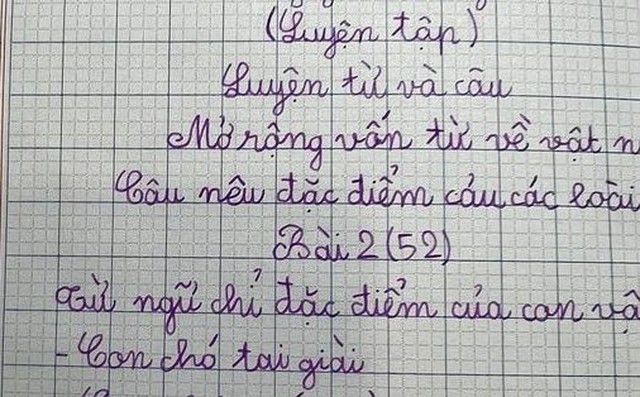 (Luyện tập)
Luyện từ và câu
Mở rộng vấn từ về vật n
Câu nêu đặc điểm cảu các loài
Bài 2 (52)
Từ ngữ chỉ đặc điểm của con vậ
- Con chó tai giài